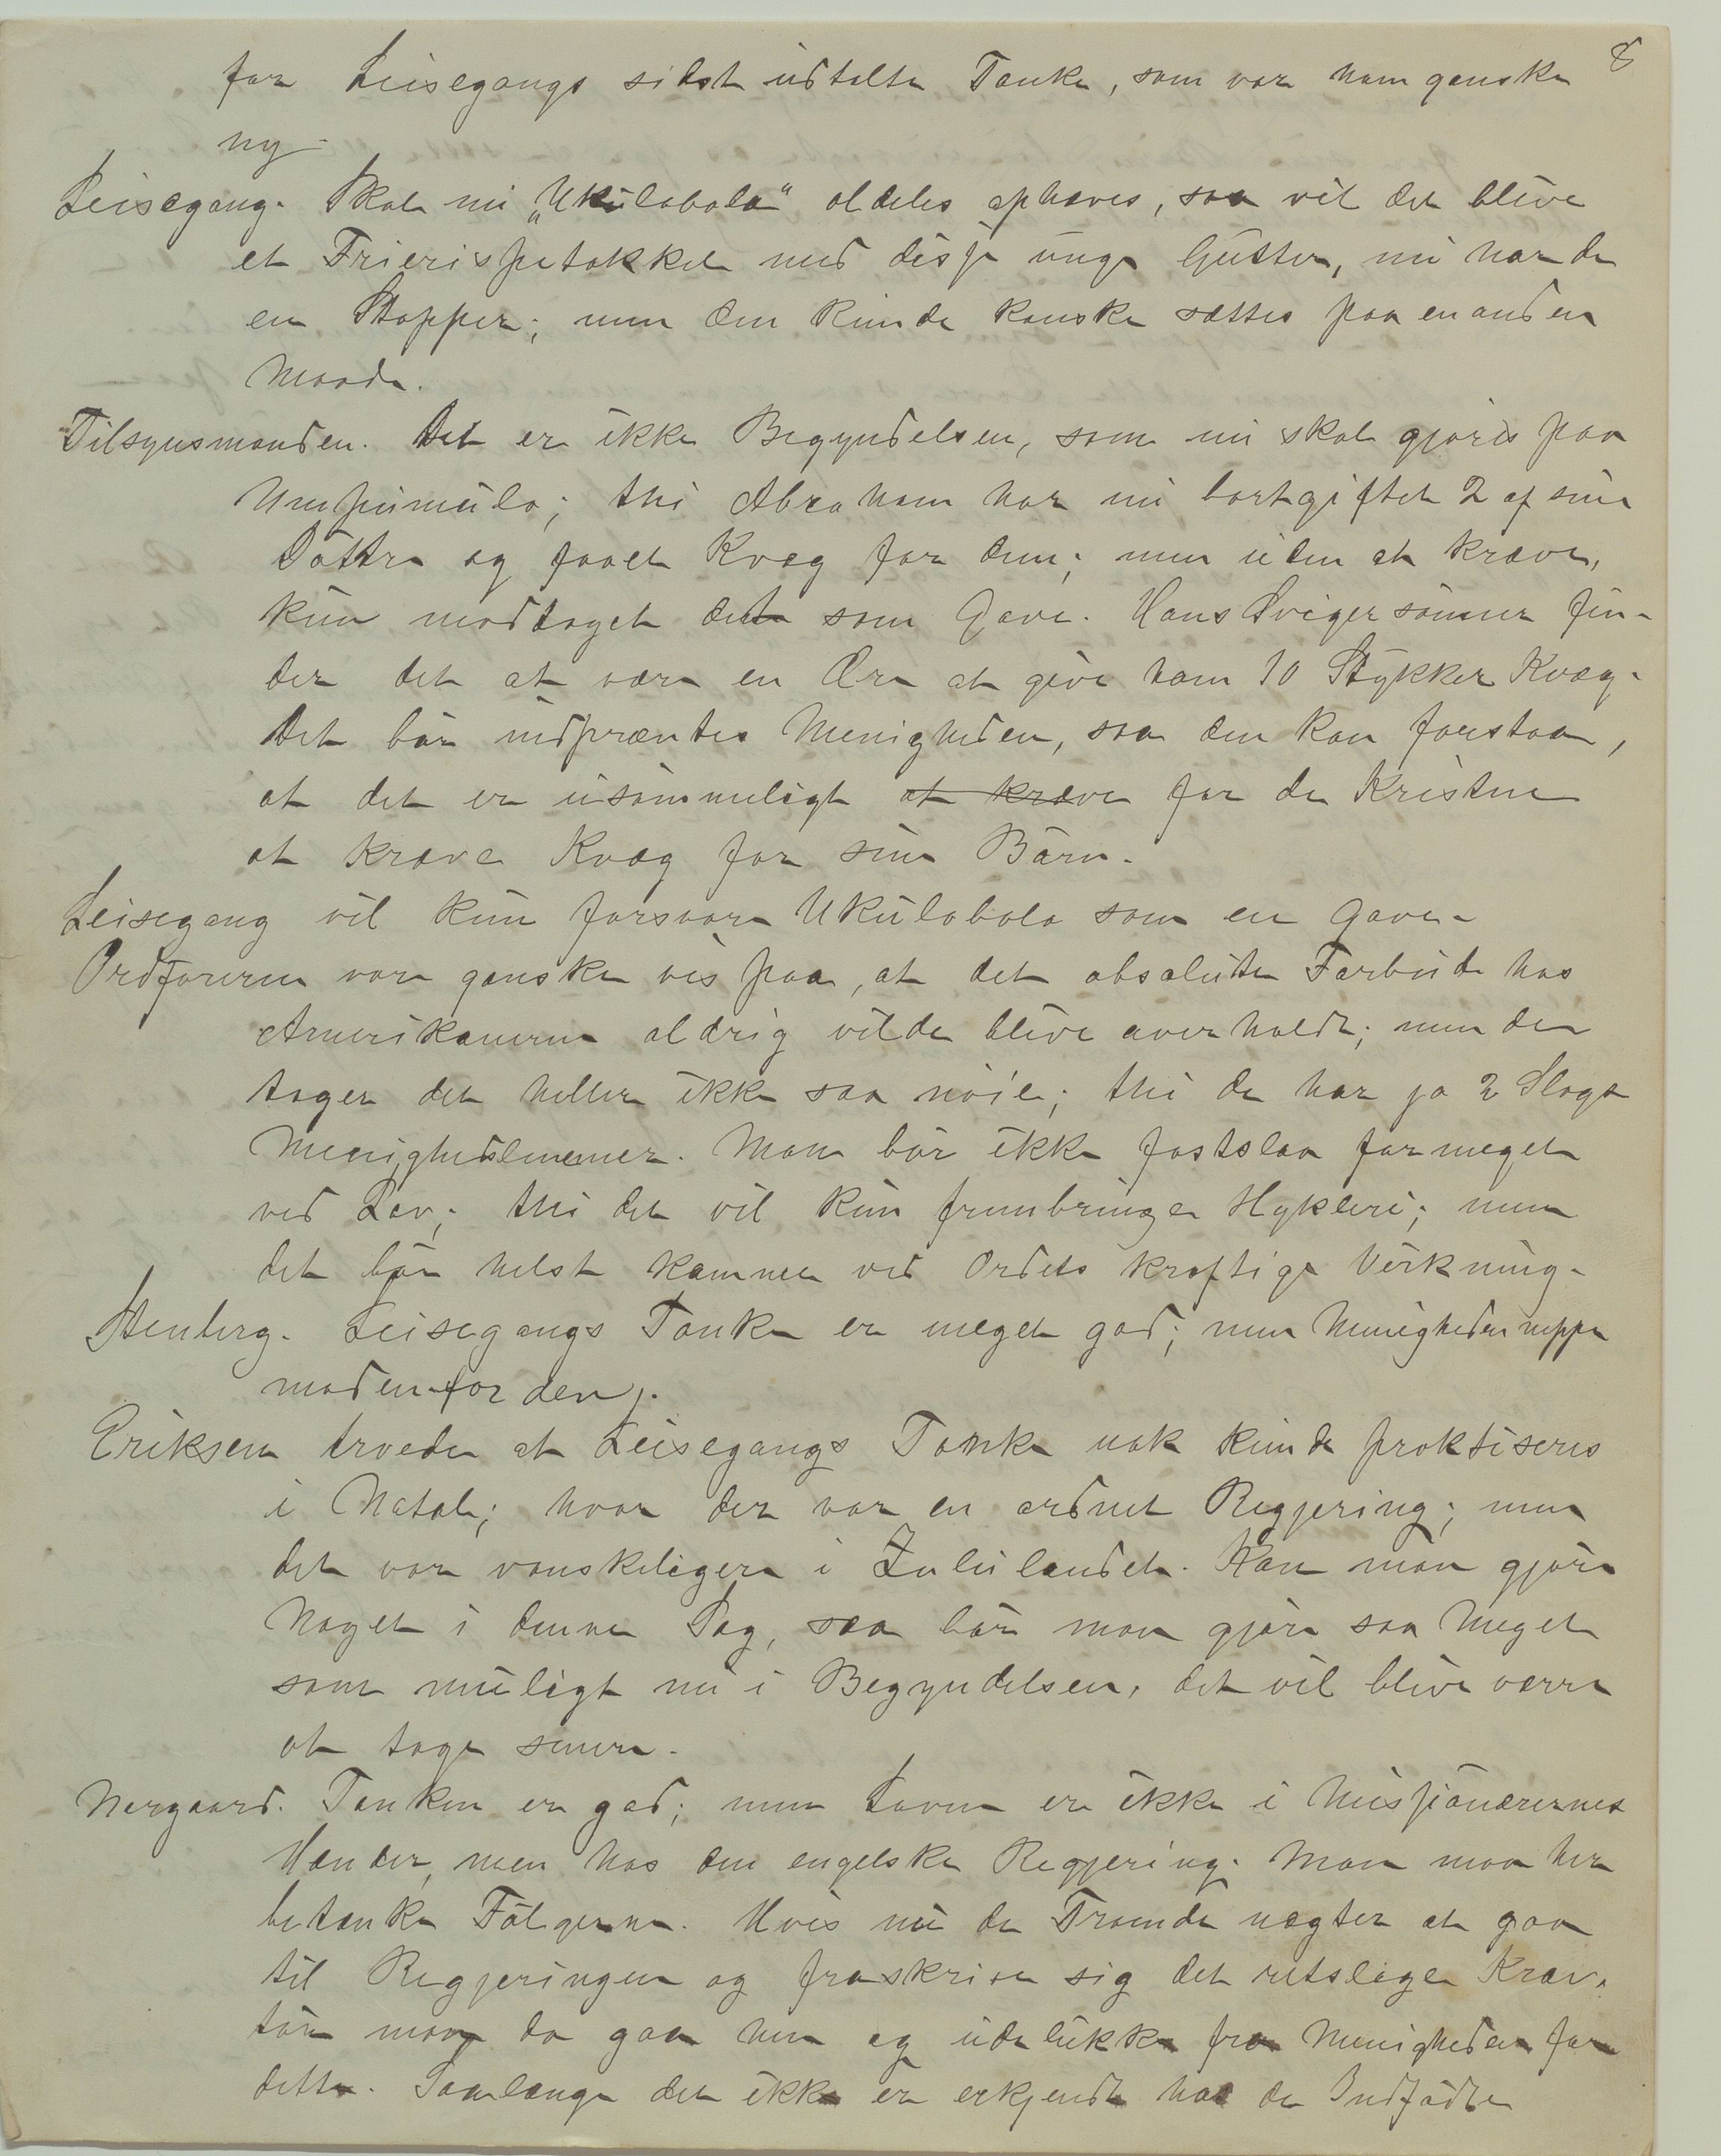 8
for Leisegangs sidst udtalte Tanke, som var ham ganske
ny.
Leisegang. Skal nu „Ukulobola" aldeles ophæves, saa vil det blive
et Frierispetakkel med disse unge Gutter, nu har de
en Stopper; men den kunde kanske sættes paa en anden
Maade.
Tilsynsmanden. Det er ikke Begyndelsen, som nu skal gjøres paa
Umpumulo; thi Abraham har nu bortgiftet 2 af sine
Döttre og faaet Kvæg for dem; men uden at kræve,
kun modtaget det som Gave. Hans Svigersönner fin-
der det at være en Ære at give ham 10 Stykker Kvæg.
Det bör indprentes Menigheden, saa den kan forstaa,
at det er usömmeligt at kræve for de Kristne
at kræve Kvæg for sine Börn.
Leisegang vil kun forsvare Ukulobola som en Gave.
Ordföreren var ganske vis paa, at det absolute Forbud hos
Amerikanerne aldrig vilde blive overholdt; men de
tager det heller ikke saa nöie; thi de har jo 2 Slags
Menighedslemmer. Man bör ikke fastslaa for meget
ved Lov; thi det vil kun frembringe Hykleri; men
det bör helst komme ved Ordets kraftige Virkning.
Stenberg. Leisegangs Tanke er meget god; men Menigheden neppe
moden for den.
Eriksen troede at Leisegangs Tanke nok kunde praktiseres
i Natal; hvor der var en ordnet Regjering; men
det var vanskeligere i Zululandet. Kan man gjöre
Noget i denne Sag, saa bör man gjöre saa Meget
som muligt nu i Begyndelsen, det vil blive værre
at tage senere.
Norgaard. Tanken er god; men Loven er ikke i Missionærernes
Hænder, men hos den engelske Regjering. Man maa her
betænke Fölgerne. Hvis nu de Troende nægter at gaa
til Regjeringen og fraskrive sig det retslige Krav,
tör man da gaa hen og udelukke fra Menigheden for
dette. Saalænge det ikke er erkjendt hos de Indfödte